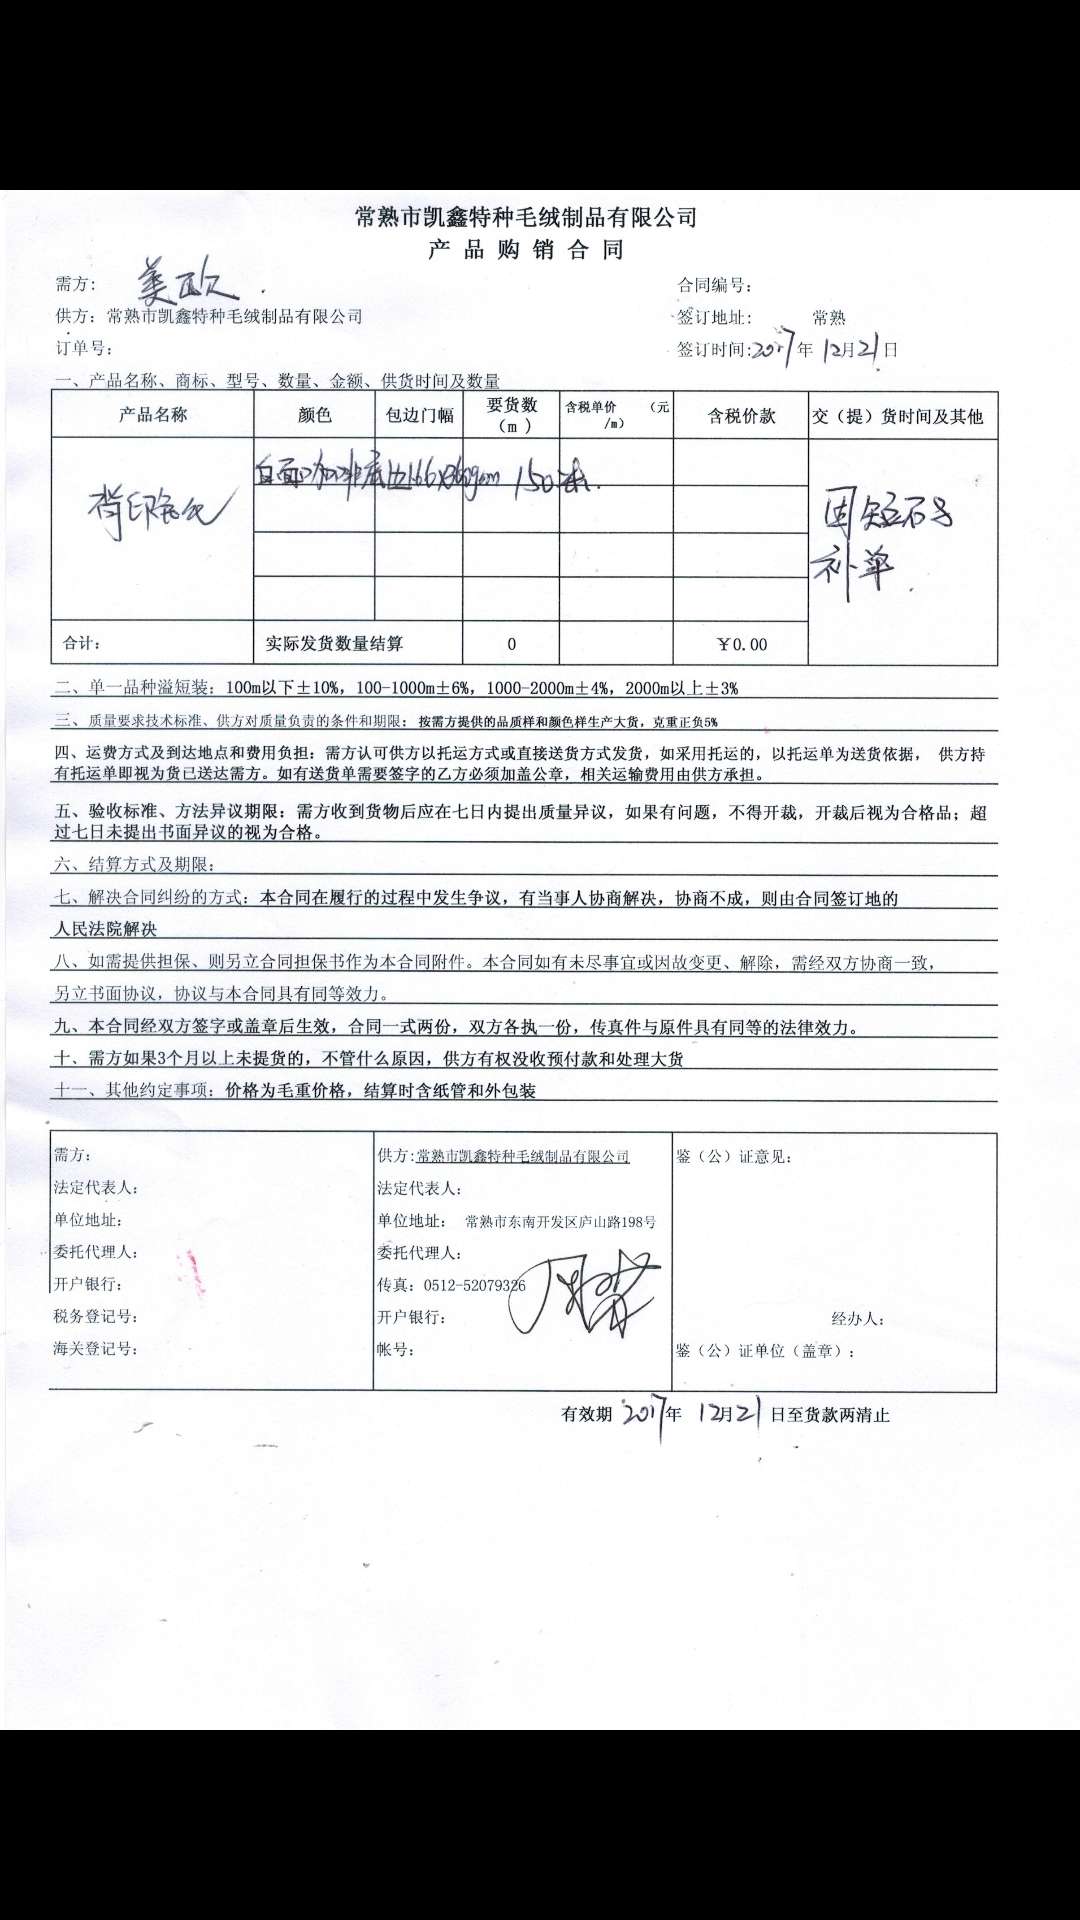 常熟市凯鑫特种毛绒制品有限公司
产 品 购 销 合 同
需方: 美欧
合同编号:
供方: 常熟市凯鑫特种毛绒制品有限公司
签订地址: 常熟
订单号:
签订时间:2017年 12月21日
一、产品名称、商标、型号、数量、金额、供货时间及数量
产品名称 颜色 包边门幅 要货数(m ) 含税单价 (元/m) 含税价款 交（提）货时间及其他
白面 咖啡底 166 360g/m 150米.
背印
因短
补单
合计: 实际发货数量结算 0 ¥0.00
二、单一品种溢短装: 100m以下±10%, 100-1000m±6%, 1000-2000m±4%, 2000m以上±3%
三、质量要求技术标准、供方对质量负责的条件和期限: 按需方提供的品质样和颜色样生产大货，克重正负5%
四、运费方式及到达地点和费用负担: 需方认可供方以托运方式或直接送货方式发货，如采用托运的，以托运单为送货依据， 供方持
有托运单即视为货已送达需方。如有送货单需要签字的乙方必须加盖公章，相关运输费用由供方承担。
五、验收标准、方法异议期限: 需方收到货物后应在七日内提出质量异议，如果有问题，不得开裁，开裁后视为合格品; 超
过七日未提出书面异议的视为合格。
六、结算方式及期限:
七、解决合同纠纷的方式: 本合同在履行的过程中发生争议，有当事人协商解决，协商不成，则由合同签订地的
人民法院解决
八、如需提供担保、则另立合同担保书作为本合同附件。本合同如有未尽事宜或因故变更、解除，需经双方协商一致，
另立书面协议，协议与本合同具有同等效力。
九、本合同经双方签字或盖章后生效，合同一式两份，双方各执一份，传真件与原件具有同等的法律效力。
十、需方如果3个月以上未提货的，不管什么原因，供方有权没收预付款和处理大货
十一、其他约定事项: 价格为毛重价格，结算时含纸管和外包装
需方:
法定代表人:
单位地址:
委托代理人:
开户银行:
税务登记号:
海关登记号:
供方:常熟市凯鑫特种毛绒制品有限公司
法定代表人:
单位地址: 常熟市东南开发区庐山路198号
委托代理人:
传真: 0512-52079326
开户银行:
帐号:
鉴（公）证意见:
经办人:
鉴（公）证单位（盖章）:
有效期 2017年 12月21 日至货款两清止